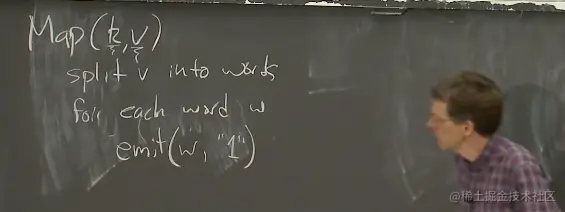 Map(k,v)
split v into words
for each word w
emit(w, "1")
@稀土掘金技术社区